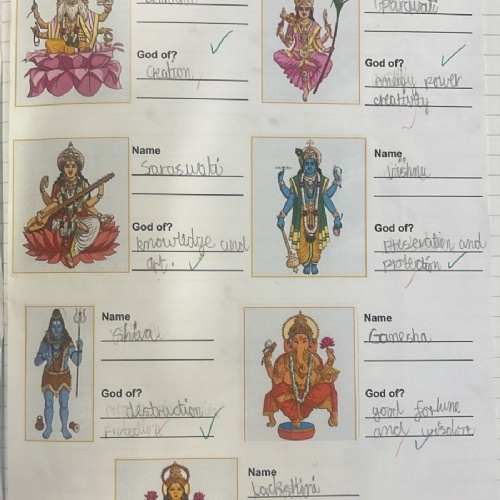 God of?
God of?
Creation,
energy power
creativity
Name
Name
Saraswati
Vishnu
God of?
God of?
knowledge and
art.
preservation and
protection
Name
Name
Shiva
Ganesha
God of?
God of?
destruction
good fortune
and wisdom
Name
Lackshini